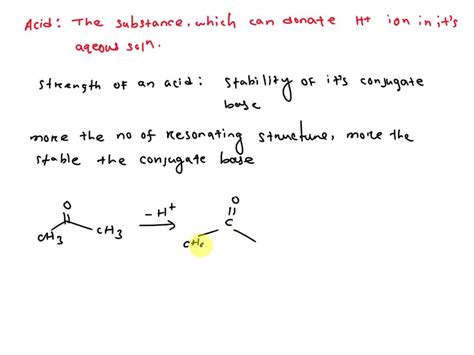 Acid: The substance, which can donate H+ ion in it's
aqeous solⁿ.
Strength of an acid: Stability of it's conjugate
base
more the no of Resonating structure, more the
stable the conjugate base
O O
-H+
C
CH3 CH3 CH